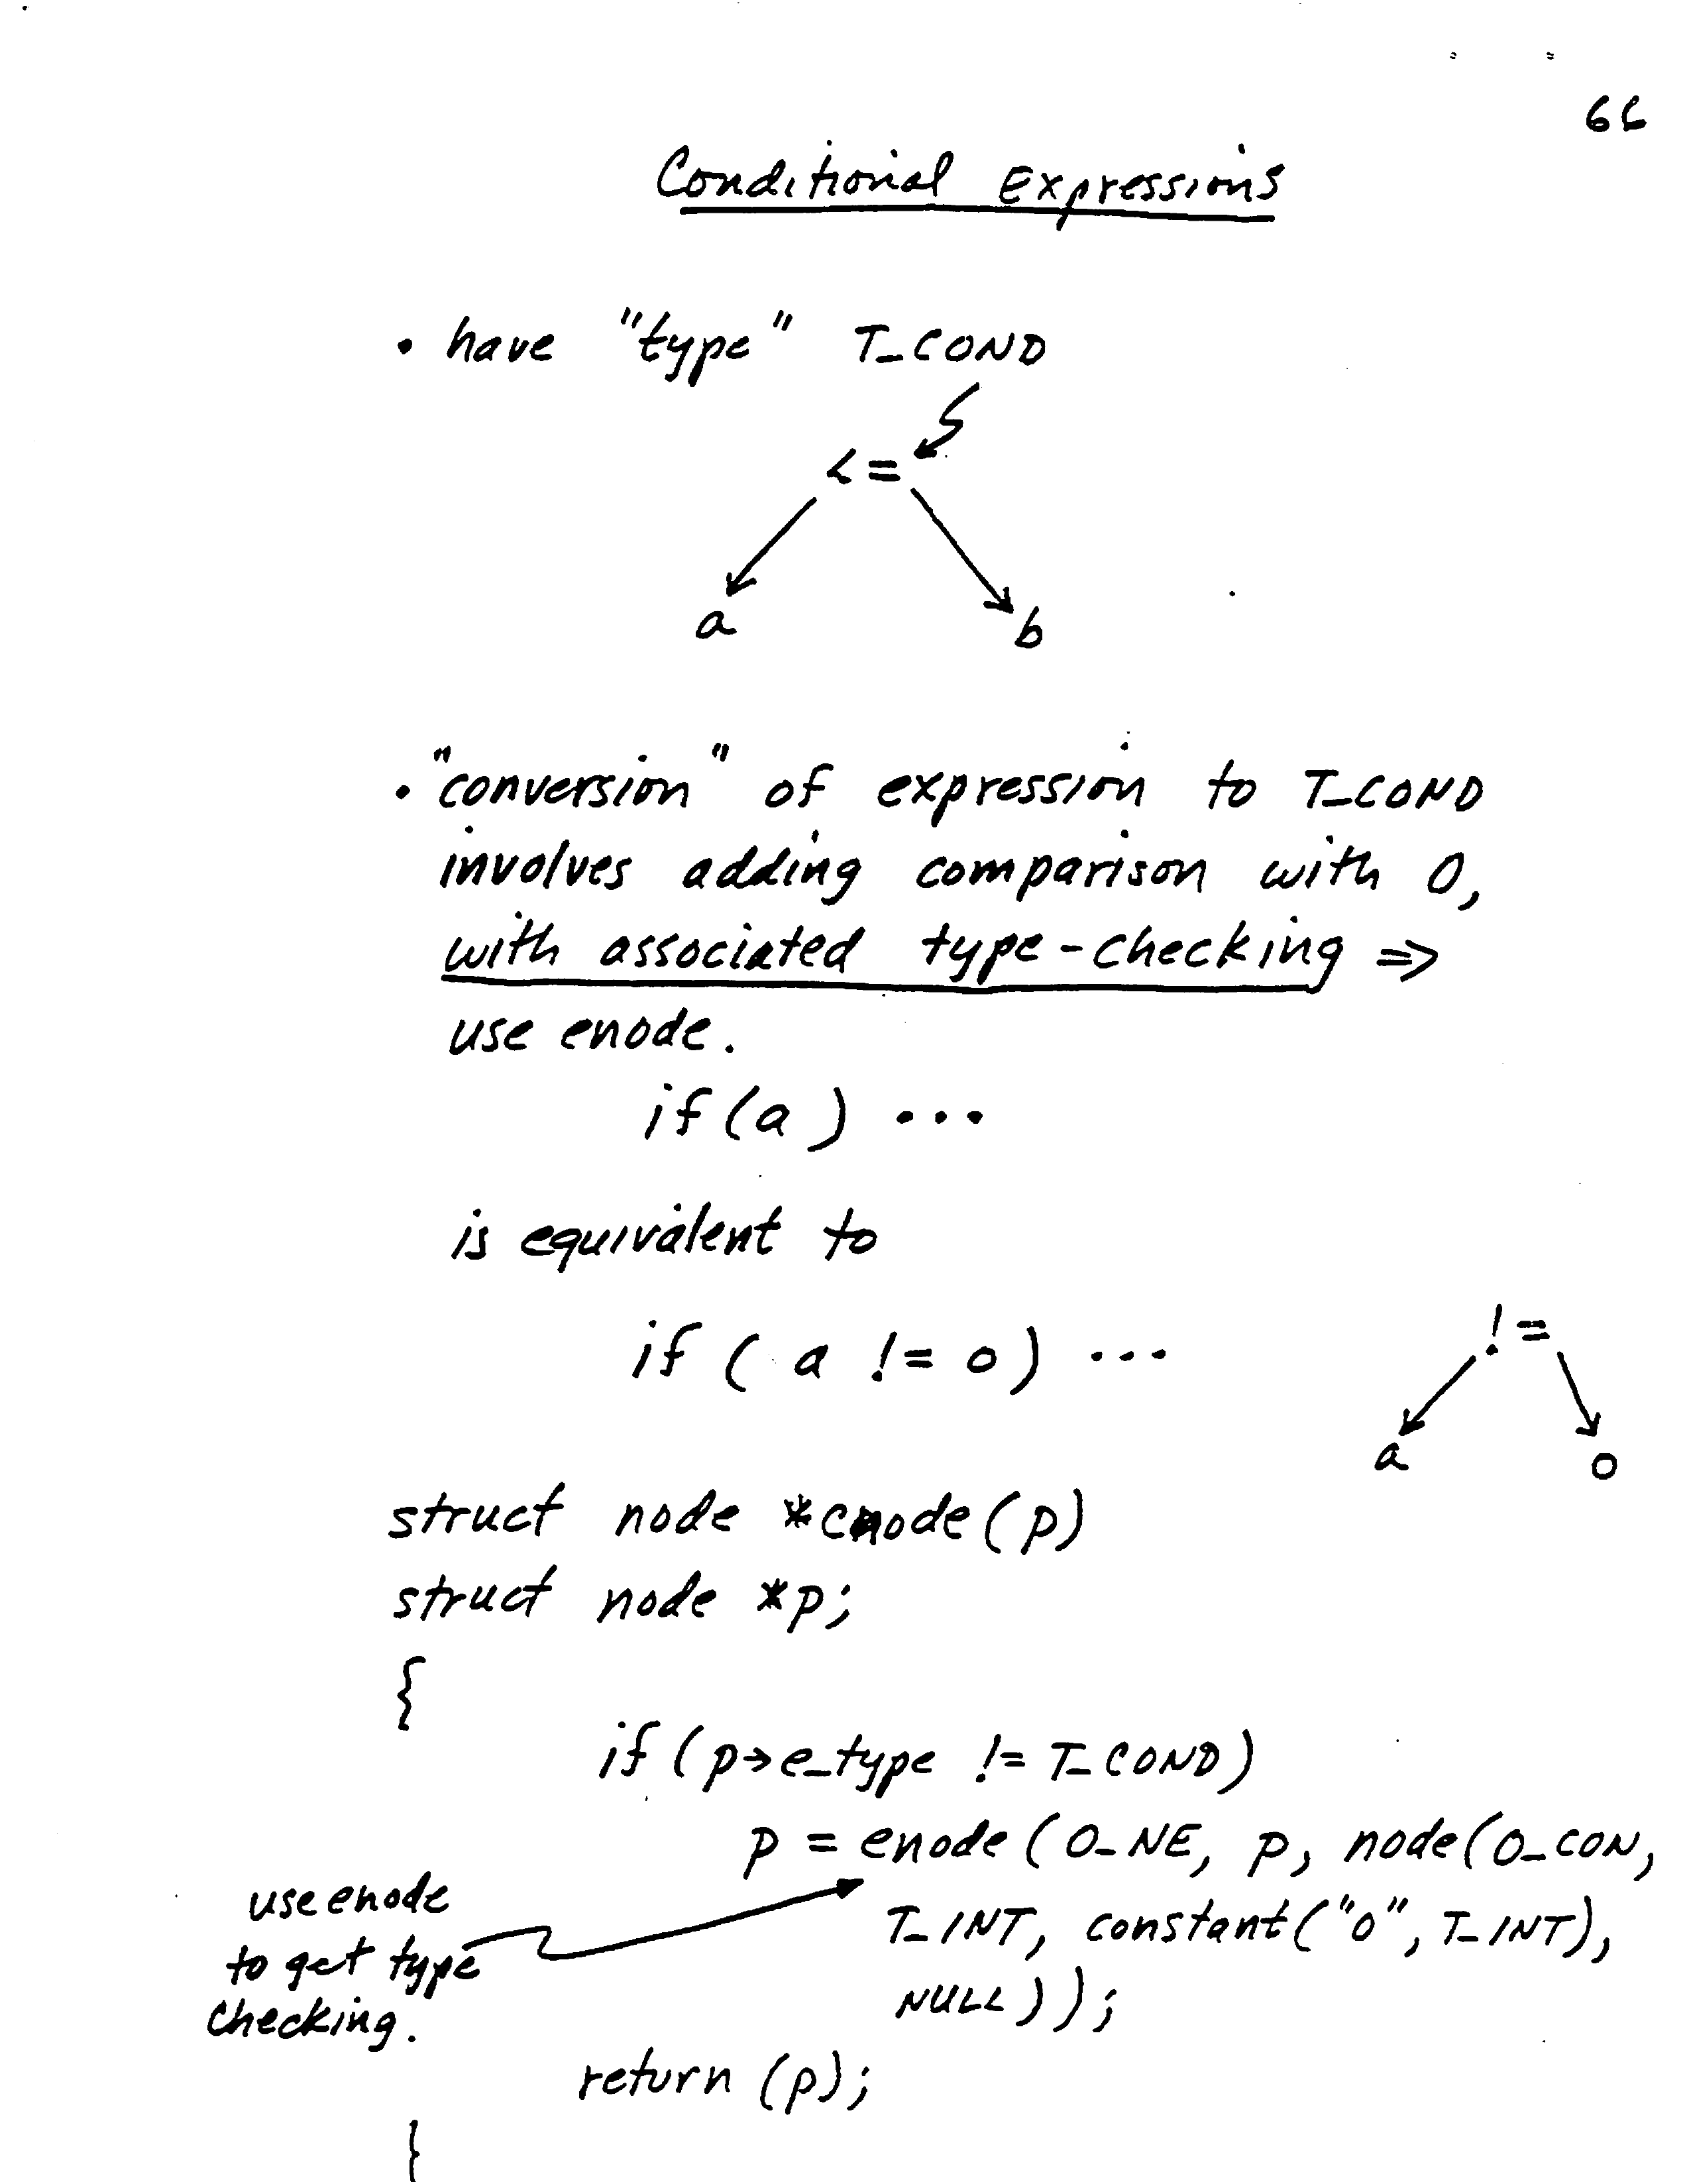 66
Conditional Expressions
• have "type" T_COND
<=
a b
• "conversion" of expression to T_COND
involves adding comparison with 0,
with associated type-checking =>
use enode.
if (a) ...
is equivalent to
if ( a != 0) ...
!=
a 0
struct node *cnode(p)
struct node *p;
{
if (p->e_type != T_COND)
p = enode(O_NE, p, node(O_CON,
T_INT, constant("0", T_INT),
NULL));
use enode
to get type
checking.
return (p);
}